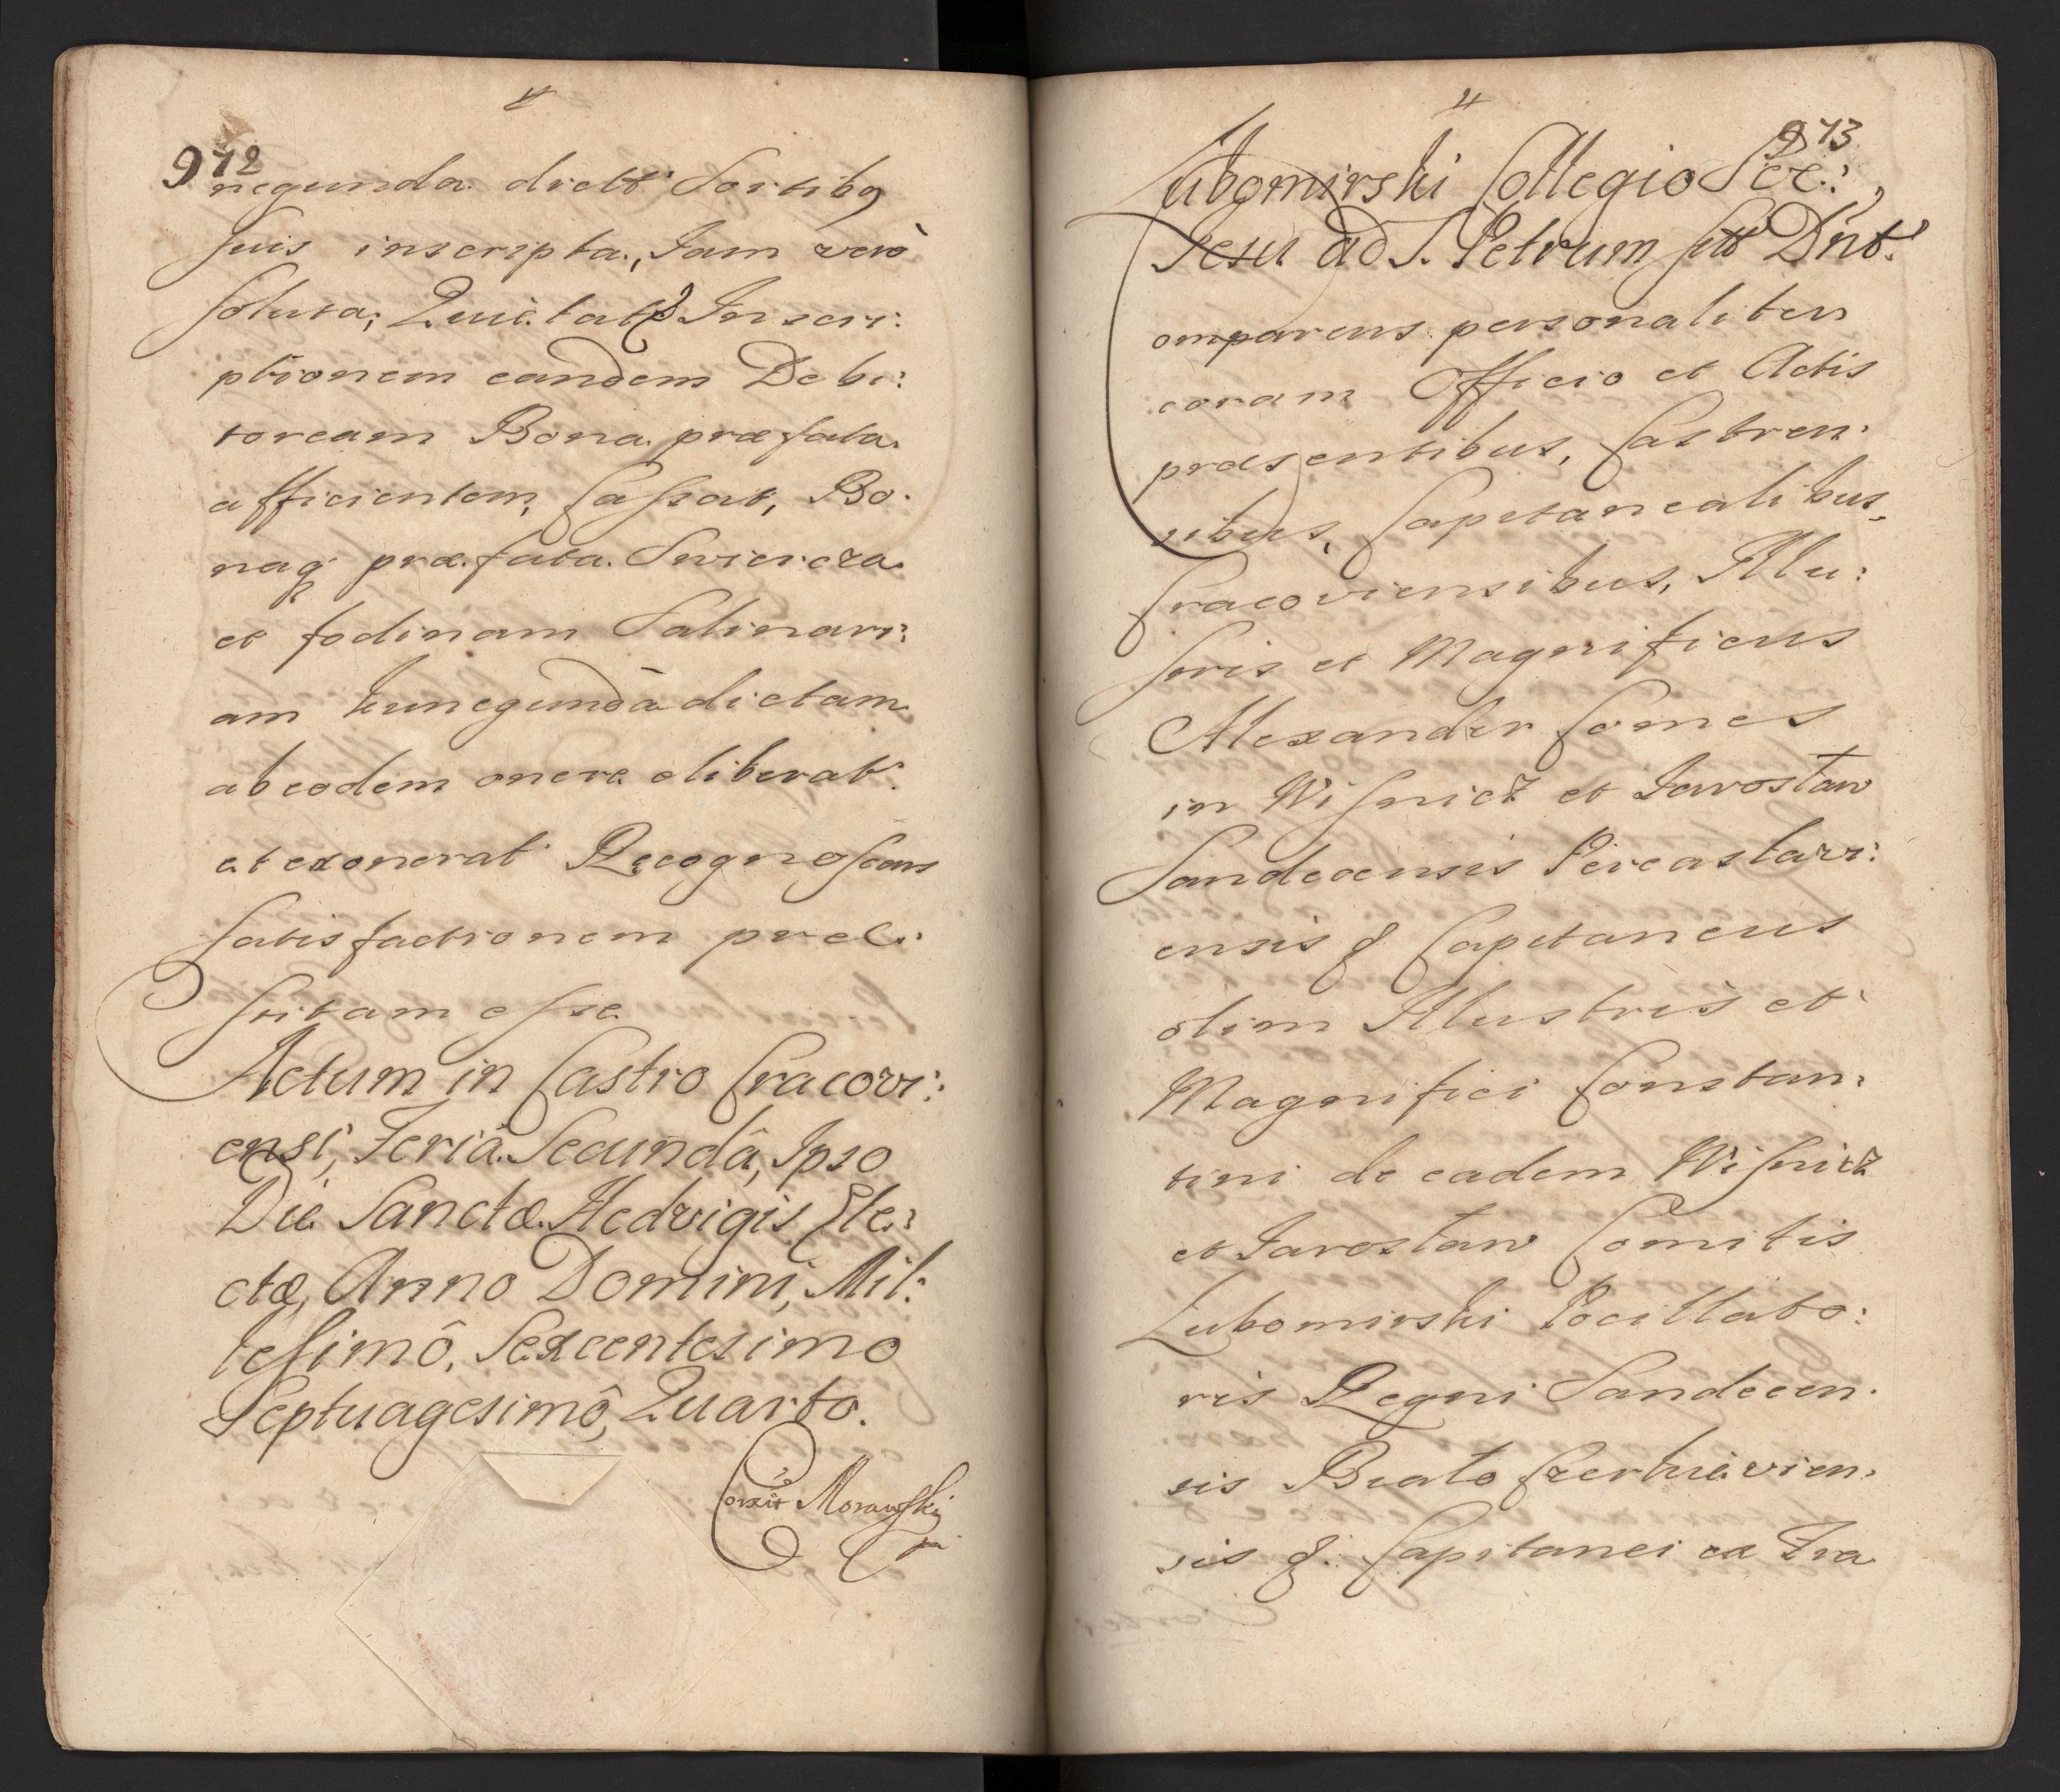 972
negunda dictt Sortibq
suis inscripta, Jam verò
soluta; Quietatq Inscri:
ptionem eandem Debi:
toream Bona præfata
afficientem, Cassat, Bo:
naq præfata Swiercza
et fodinam Salinari:
am Kunegunda dictam
ab eodem onere eliberat
et exonerat Recognoscens
satisfactionem præ
stitam esse
Actum in Castro Cracovi:
ensi, Feriâ Secundâ, Ipso
Die Sanctæ Hedvigis Ele:
ctæ, Anno Domini, Mil:
lesimô, Sexcentesimo
Septuagesimô, Quarto.
Correxit Morawski
973
Lubomirski Collegio Soc:
Jesu ad S. Petrum
omparens personaliter
coram Officio et Actis
præsentibus, Castren:
sibus, Capitanealibus
Cracoviensibus, Illu:
stris et Magnificus
Alexander Comes
in Wisnicz et Jarosław
Sandecensis Pereaslavi:
ensis q Capitaneus
olim Illustris et
Magnifici Constan:
tini de eadem Wisnicz
et Jarosław Comitis
Lubomirski Pocillato:
ris Regni Sandecen:
sis Biało Czerkievien:
sis q: Capitanei ex Fra